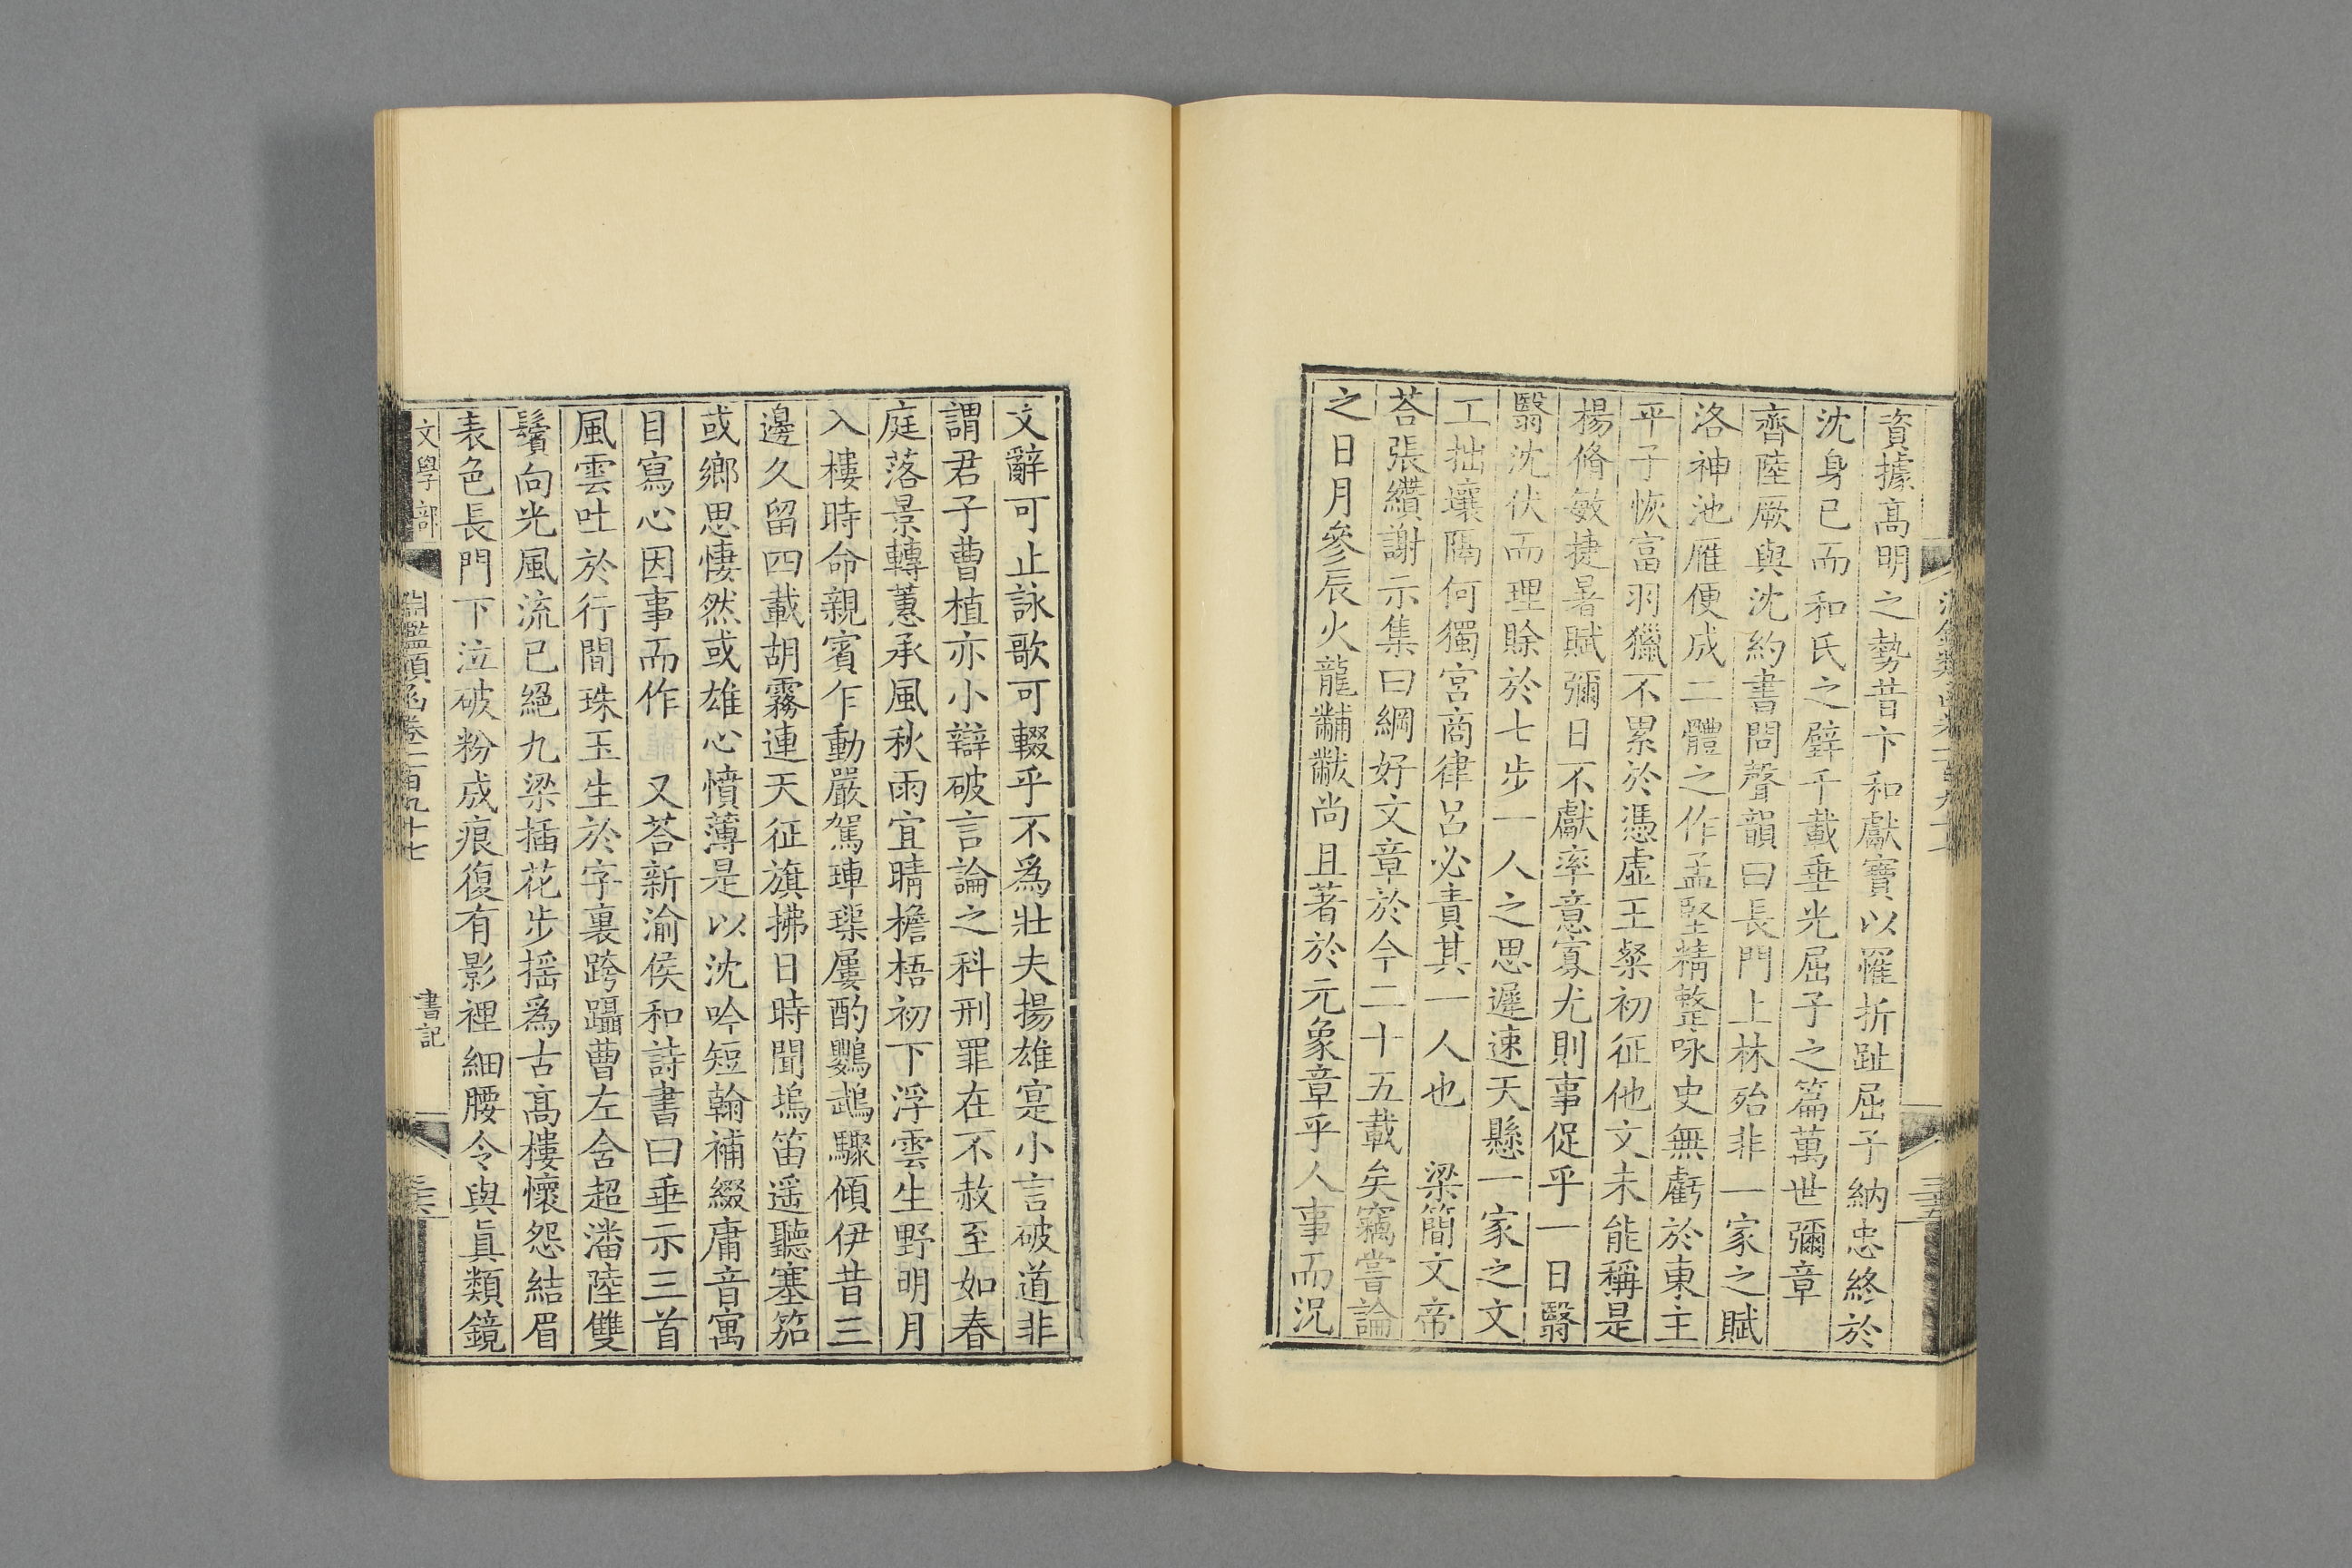 資據高明之勢昔卞和獻寶以罹折趾屈子納忠終於
沈身已而和氏之璧千載垂光屈子之篇萬世彌章
齊陸厥與沈約書問聲韻曰長門上林殆非一家之賦
洛神池雁便成二體之作孟堅精整咏史無虧於東主
平子恢富羽獵不累於憑虛王粲初征他文未能稱是
楊脩敏捷暑賦彌日不獻率意寡尤則事促乎一日翳
翳沈伏而理賒於七步一人之思遲速天懸一家之文
工拙壤隔何獨宮商律呂必責其一人也　梁簡文帝
荅張纘謝示集曰綱好文章於今二十五載矣竊嘗論
之日月參辰火龍黼黻尚且著於元象章乎人事而況
文辭可止詠歌可輟乎不爲壯夫揚雄寔小言破道非
謂君子曹植亦小辯破言論之科刑罪在不赦至如春
庭落景轉蕙承風秋雨宜晴檐梧初下浮雲生野明月
入樓時命親賓乍動嚴駕車渠屢酌鸚鵡驟傾伊昔三
邊久留四載胡霧連天征旗拂日時聞塢笛遥聽塞笳
或鄉思悽然或雄心憤薄是以沈吟短翰補綴庸音寓
目寫心因事而作　又荅新渝侯和詩書曰垂示三首
風雲吐於行間珠玉生於字裏跨躡曹左含超潘陸雙
鬢向光風流已絕九梁插花步搖爲古高樓懷怨結眉
表色長門下泣破粉成痕復有影裡細腰令與眞類鏡
文學部　淵鑑類函卷二百九十七　書記　三六